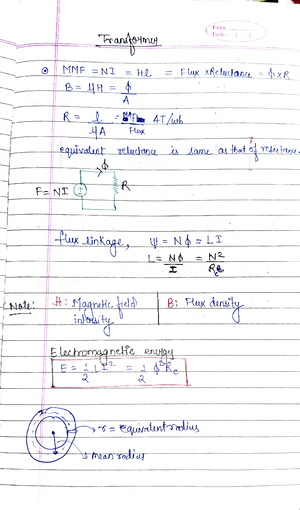 Transformer
MMF = NI = Hl = Flux × Reluctance = Φ × R
B = μH = Φ/A
R = l/μA = /Flux AT/wb
equivalent reluctance is same as that of resistance.
Φ
F = NI R
flux linkage, Ψ = NΦ = LI
L = NΦ/I = N²/R
Note: H: Magnetic field intensity B: Flux density
Electromagnetic energy
E = 1/2 LI² = 1/2 Φ²R
r = equivalent radius
mean radius